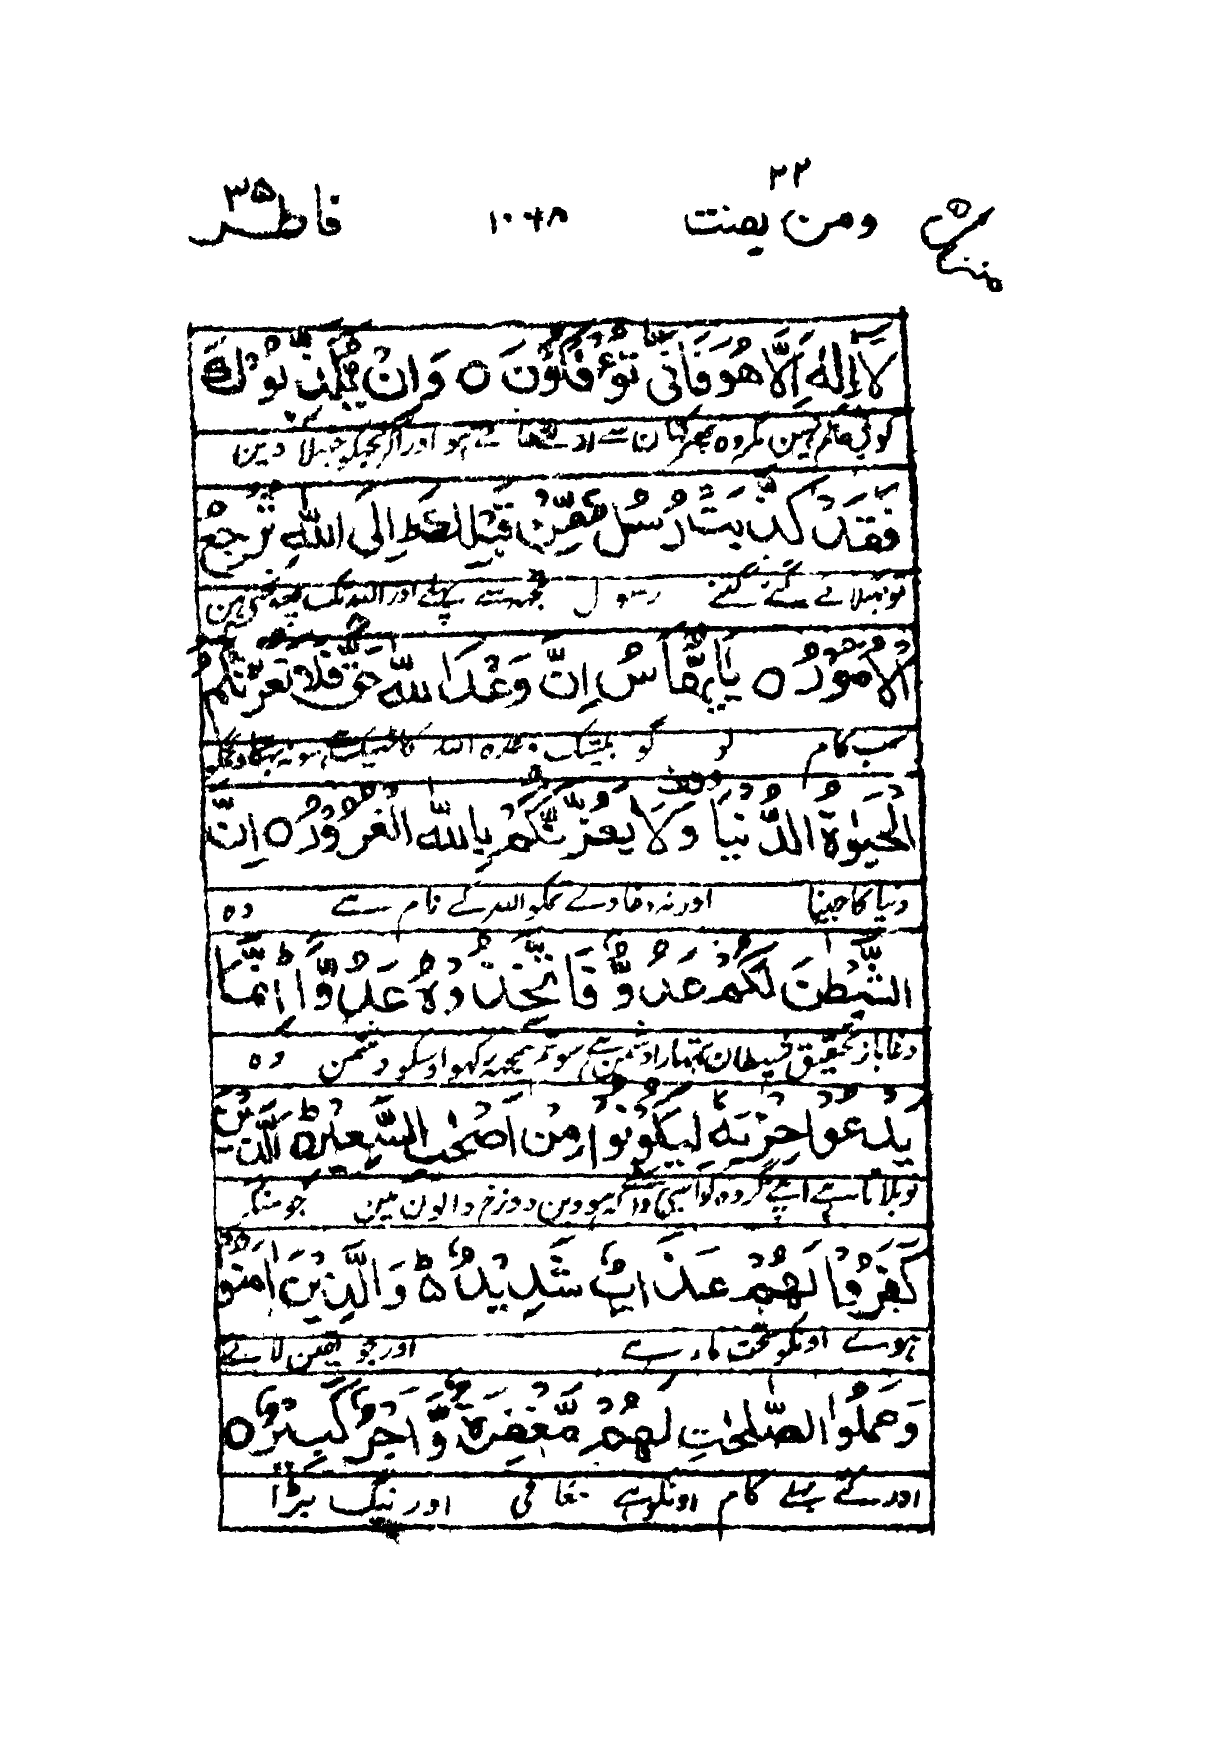 ۲۲
ومن یقنت ۱۰۴۸ فاطر ۳۵
لَاۤ اِلٰهَ اِلَّا هُوَ فَاَنّٰی تُؤْفَكُوْنَ ۝ وَاِنْ یُّكَذِّبُوْكَ
کوئی حاکم نہین مگر وہ پھر کہان سے اولٹے جاتے ہو اور اگر تجھکو جھٹلا دین
فَقَدْ كُذِّبَتْ رُسُلٌ مِّنْ قَبْلِكَ ؕ اِلَی اللّٰهِ تُرْجَعُ
تو جھٹلائے گئے رسول تجھہ سے پہلے اور اللہ تک پہنچتے ہین
الْاُمُوْرُ ۝ یٰۤاَیُّهَا النَّاسُ اِنَّ وَعْدَ اللّٰهِ حَقٌّ فَلَا تَغُرَّنَّكُمُ
سب کام لوگو بیشک وعدہ اللہ کا ٹھیک ہے سو نہ بہکاوے تمکو
الْحَیٰوةُ الدُّنْیَا وقفة وَلَا یَغُرَّنَّكُمْ بِاللّٰهِ الْغَرُوْرُ ۝ اِنَّ
دنیا کا جینا اور نہ دغا دے تمکو اللہ کے نام سے وہ
الشَّیْطٰنَ لَكُمْ عَدُوٌّ فَاتَّخِذُوْهُ عَدُوًّا ؕ اِنَّمَا
دغاباز تحقیق شیطان تمہارا دشمن ہے سو تم سمجھہ رکھو اوسکو دشمن وہ
یَدْعُوْا حِزْبَهٗ لِیَكُوْنُوْا مِنْ اَصْحٰبِ السَّعِیْرِ ؕ اَلَّذِیْنَ
تو بلاتا ہے اپنے گروہ کو اسی واسطے کہ ہووین دوزخ والون مین جو منکر
كَفَرُوْا لَهُمْ عَذَابٌ شَدِیْدٌ ؕ وَالَّذِیْنَ اٰمَنُوْا
ہوے اونکو سخت مار ہے اور جو یقین لائے
وَعَمِلُوا الصّٰلِحٰتِ لَهُمْ مَّغْفِرَةٌ وَّاَجْرٌ كَبِیْرٌ ۝
اور کئے بھلے کام اونکو ہے معافی اور نیگ بڑا